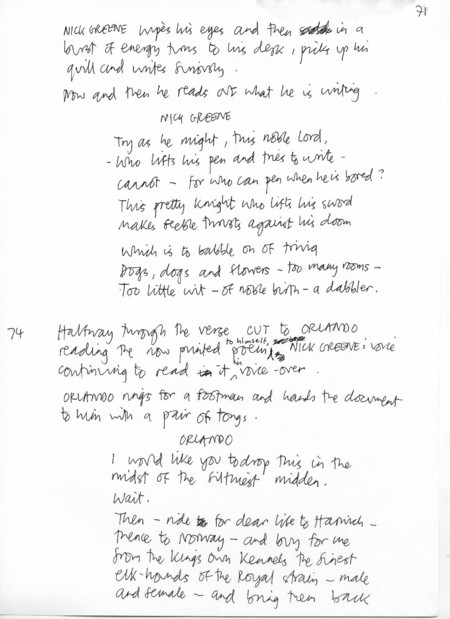 71
NICK GREENE wipes his eyes and then in a
burst of energy turns to his desk, picks up his
quill and writes furiously.
Now and then he reads out what he is writing.
NICK GREENE
Try as he might, this noble Lord,
- Who lifts his pen and tries to write -
cannot - for who can pen when he is bored?
This pretty knight who lifts his sword
makes feeble thrusts against his doom
Which is to babble on of trivia
Dogs, dogs and flowers - too many rooms -
Too little wit - of noble birth - a dabbler.
74 Halfway through the verse CUT to ORLANDO
reading the now printed poem to himself, NICK GREENE's voice
continuing to read it in voice-over.
ORLANDO rings for a footman and hands the document
to him with a pair of tongs.
ORLANDO
I would like you to drop this in the
midst of the filthiest midden.
Wait.
Then - ride for dear life to Harwich -
thence to Norway - and buy for me
from the King's own Kennels the finest
elk-hounds of the Royal strain - male
and female - and bring them back